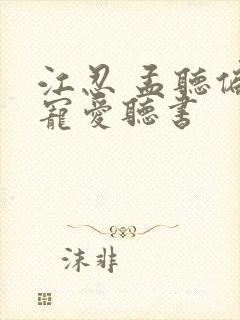 江忍 孟聽偏
寵愛聽書
沫非